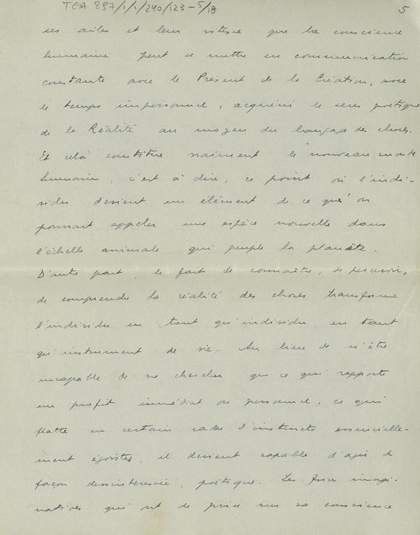 TEA 897/1/1/240/123-5/13
5
ses ailes et leurs que la conscience
humaine peut se mettre en communication
constante avec le Présent de la Création, avec
le temps impersonnel, acquérir le sens poétique
de la Réalité au moyen du langage des choses.
Et cela constitue vraiment le nouveau monde
humain, c'est à dire, ce point où l'indi-
vidu devient un élément de ce qu'on
pourrait appeler une espèce nouvelle dans
l'échelle animale qui peuple la planète.
D'autre part, le fait de connaître, de percevoir,
de comprendre la réalité des choses transforme
l'individu en tant qu'individu en tant
qu'instrument de vie. Au lieu de n'être
incapable de ne chercher que ce qui rapporte
un profit immédiat ou personnel, ce qui
flatte un certain d'instincts essentielle-
ment égoïstes, il devient capable d'agir de
façon désintéressée, poétique. Les images imagi-
natives qui ont de prise sur sa conscience